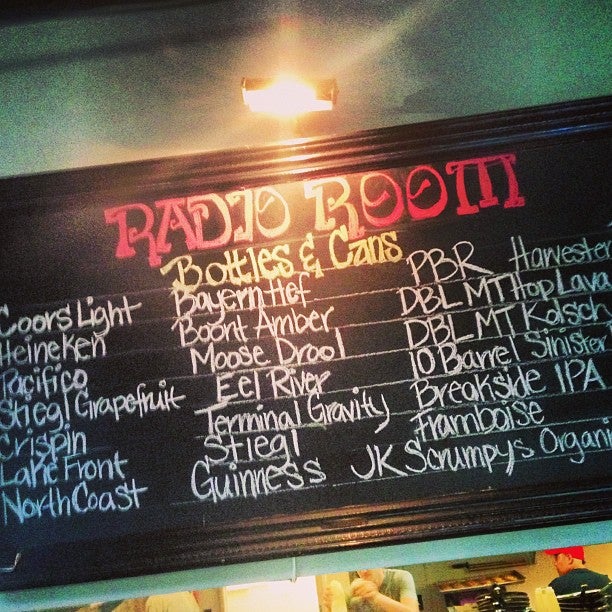 RADIO ROOM
Bottles & Cans
Coors Light
Heineken
Pacifico
Stiegl Grapefruit
Crispin
Lake Front
North Coast
Bayern Hef
Boont Amber
Moose Drool
Eel River
Terminal Gravity
Stiegl
Guinness
PBR Harvester
DBL MT Hop Lava
DBL MT Kolsch
10 Barrel Sinister
Breakside IPA
Framboise
JK Scrumpys Organi